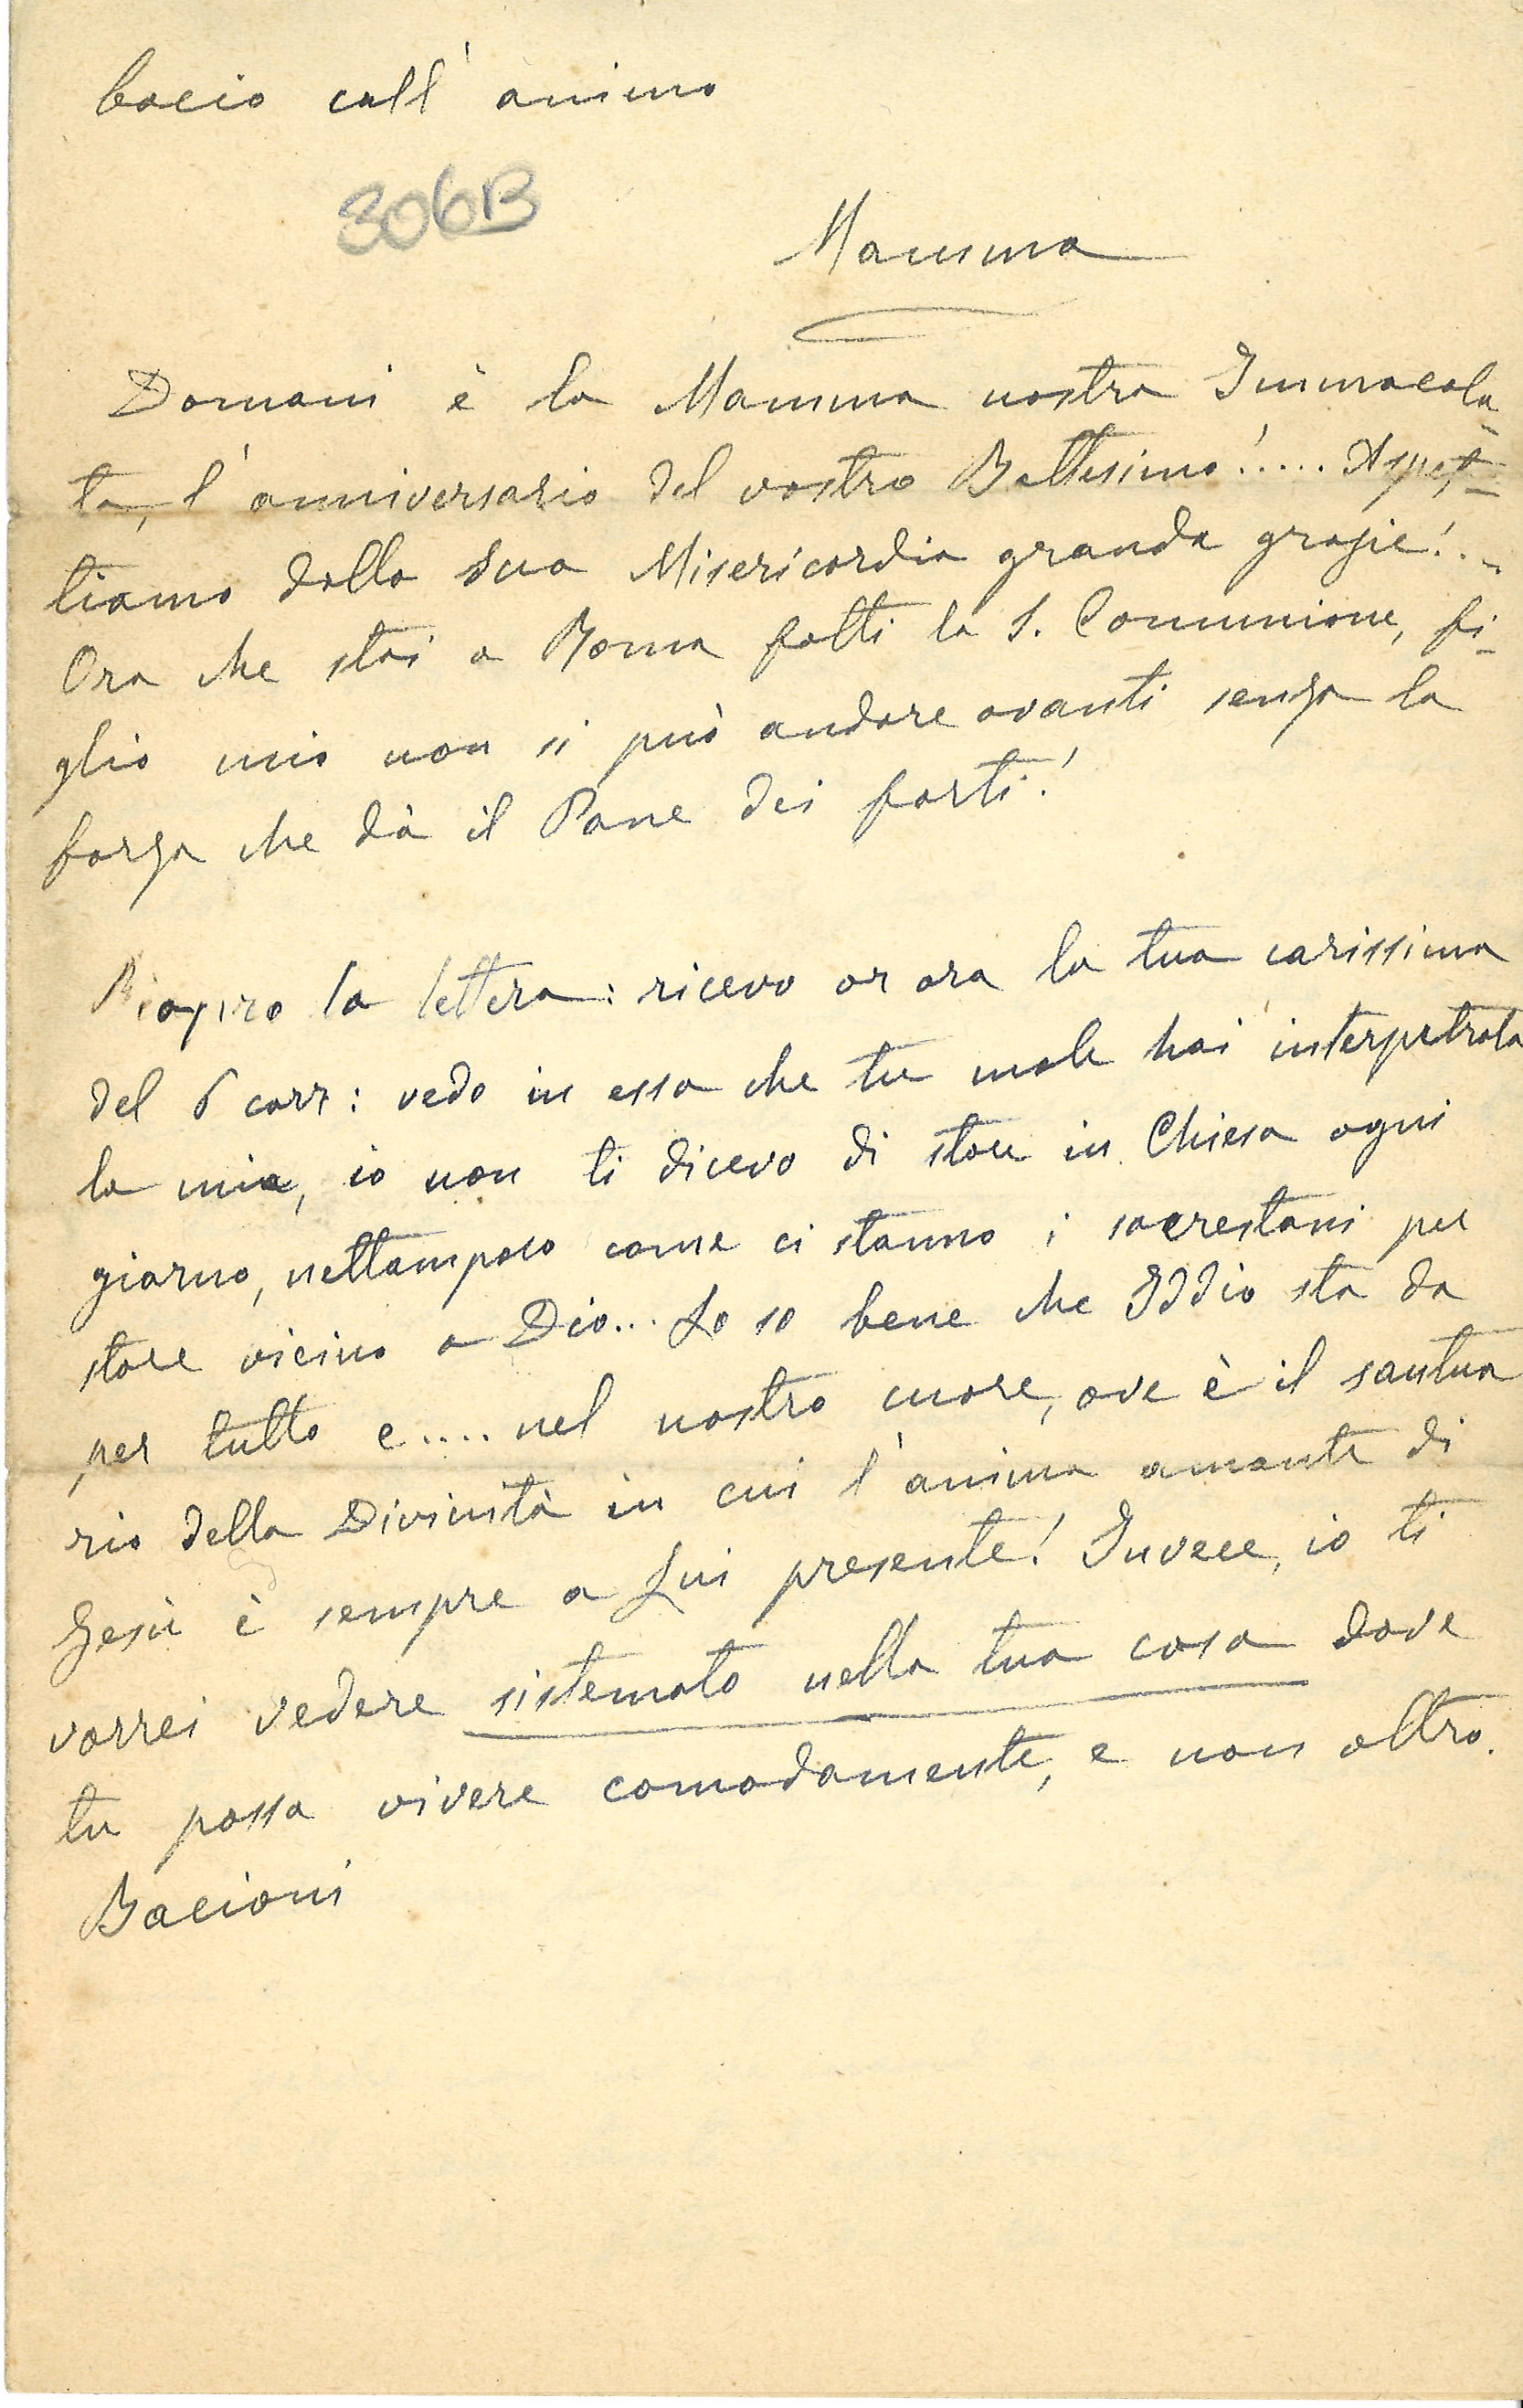 bacio coll'animo
306B
Mamma
Domani è la Mamma nostra Immacola-
ta, l'anniversario del vostro Battesimo!..... Aspet-
tiamo dalla Sua Misericordia grande grazie!..
Ora che stai a Roma fatti la S. Comunione, fi-
glio mio non si può andare avanti senza la
forza che dà il Pane dei forti!
Riapro la lettera: ricevo or ora la tua carissima
del 6 corr: vedo in essa che tu male hai interpetrata
la mia, io non ti dicevo di stare in Chiesa ogni
giorno, nettampoco come ci stanno i sacrestani per
stare vicino a Dio... Lo so bene che Iddio sta da
per tutto e.... nel nostro cuore, ove è il santua
rio della Divinità in cui l'anima amante di
Gesù è sempre a Lui presente! Invece, io ti
vorrei vedere sistemato nella tua casa dove
tu possa vivere comodamente, e non altro.
Bacioni